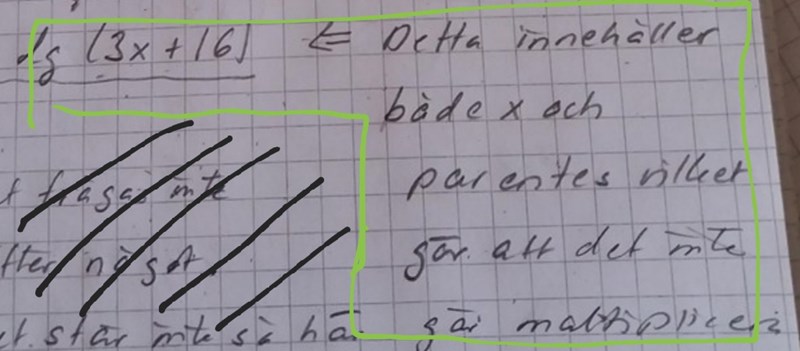 lg (3x+16) ⇐ Detta innehåller
både x och
parentes vilket
gör att det inte
går multiplicera
t frågas inte
fter något
et. står inte så här